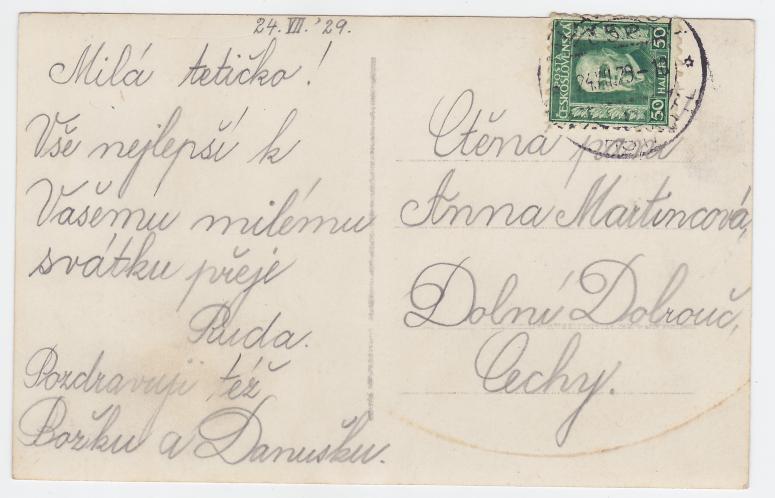 24. VII. '29.
Milá tetičko!
Vše nejlepší k
Vašemu milému
svátku přeje
Ruda.
Pozdravuji též
Božku a Danušku.
POSTA
ČESKOSLOVENSKÁ
50 HALÉŘŮ 50
Ctěná paní
Anna Martincová,
Dolní Dobrouč,
Čechy.